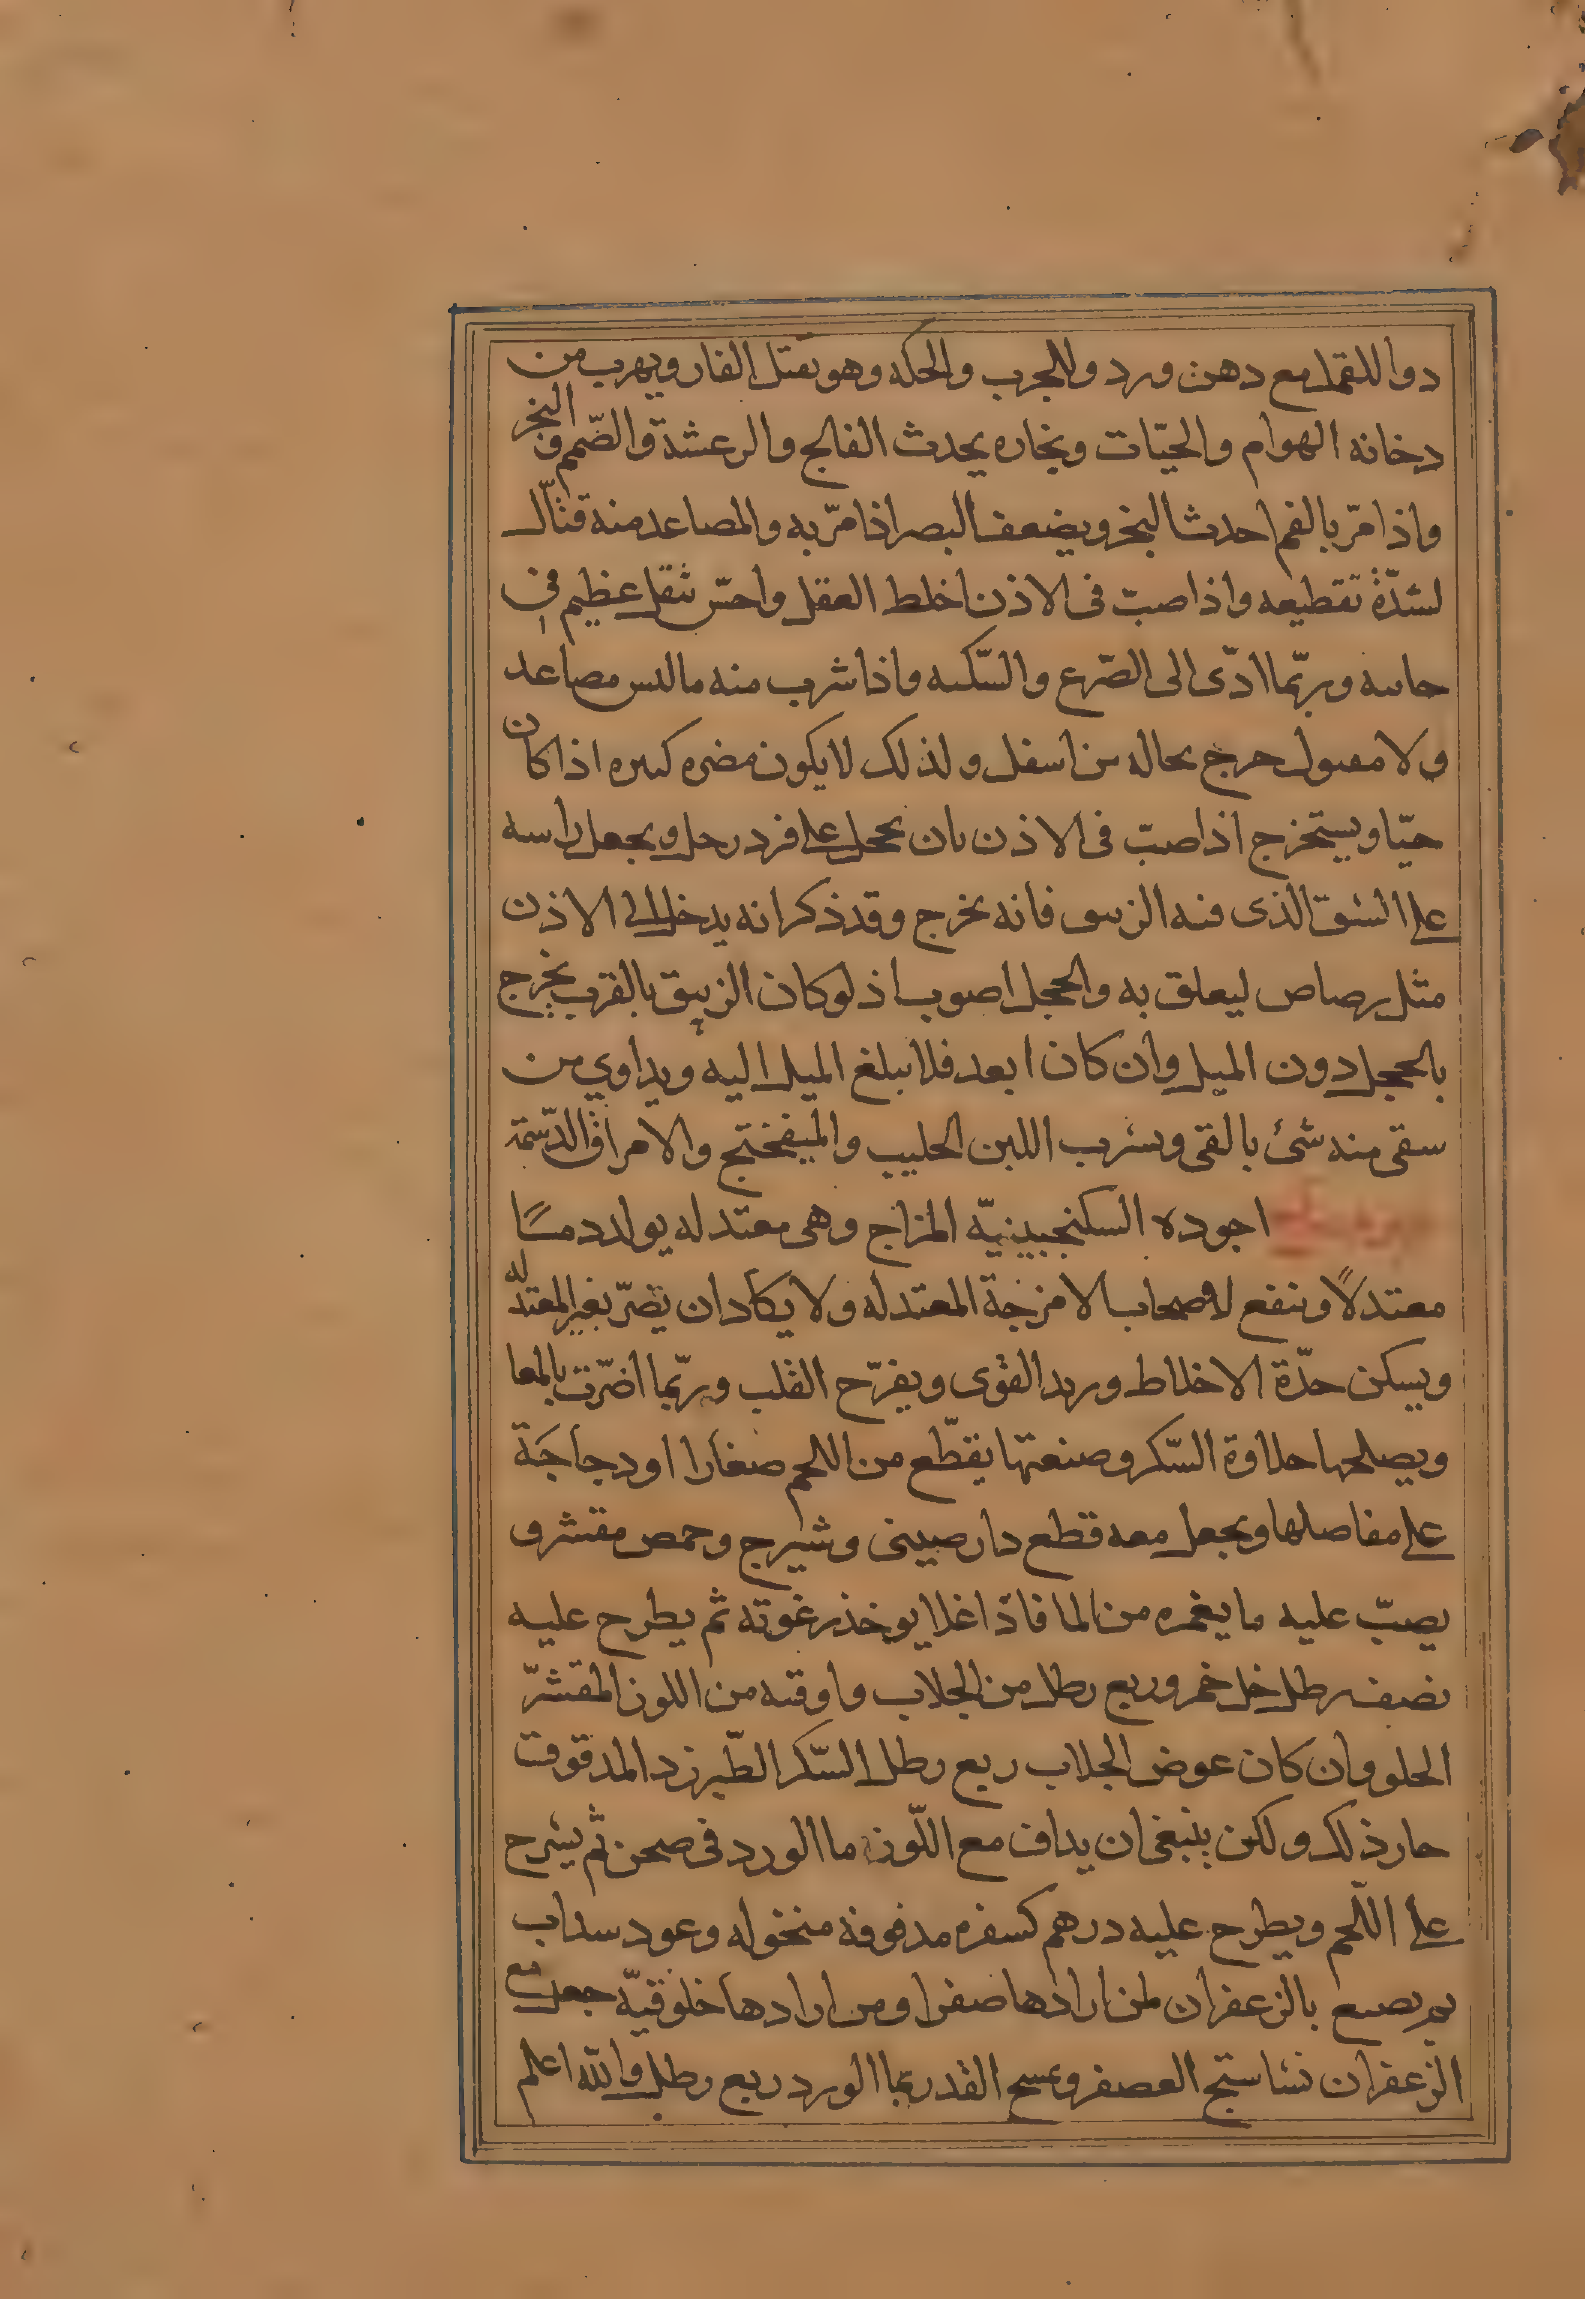 دوا للقمل مع دهن ورد وللجرب والحكه وهو يقتل الفار ويهرب من
دخانه الهوام والحيّات وبخاره يحدث الفالج والرعشة والصّمم والبخر
واذا مرّ بالفم احدث البخر ويضعف البصر اذا مرّ به والمصاعد منه قتّال
لشدّة تقطيعه واذا صبّ فى الاذن اخلط العقل واحسّ بثقل عظيم فى
جانبه وربّما ادّى الى الصّرع والسّكته واذا شرب منه ما ليس مصاعد
ولا مقتول خرج بحاله من اسفل ولذلك لا يكون مضره كبيره اذا كان
حيّا ويستخرج اذا صبّ فى الاذن بان يحجل على فرد رجل ويجعل راسه
على الشقّ الذى فيه الزيبق فانه يخرج وقد ذكر انه يدخل الى الاذن
مثل رصاص ليعلق به والحجل اصوب اذ لو كان الزيبق بالقرب يخرج
بالحجل دون الميل وان كان ابعد فلا يبلغ الميل اليه ويداوي من
سقى منه شئ بالقى وبشرب اللبن الحليب والميفختج والامراق الدّسمة
اجوده السكنجبينيّه المزاج وهى معتدله يولد دمًا
معتدلًا وينفع لاصحاب الامزجة المعتدله ولا يكاد ان يضرّ بغير المعتدله
ويسكن حدّة الاخلاط ويريد القوى ويفرّح القلب وربّما اضرّت بالمعا
ويصلحها حلاوة السّكر وصنعتها يقطّع من اللحم صغارا او دجاجَة
على مفاصلها ويجعل معه قطع دارصينى وشيرج وحمص مقشر و
يصبّ عليه ما يغمره من الما فاذا غلا يوخذ رغوته ثم يطرح عليه
نصف رطل خل خمر وربع رطل من الجلاب واوقيه من اللوز المقشّر
الحلو وان كان عوض الجلاب ربع رطل السّكر الطّبرزد المدقوق
جاز ذلك ولكن ينبغى ان يداف مع اللّوز ما الورد فى صحن ثم يشرح
على اللّحم ويطرح عليه درهم كسفره مدقوقه منخوله وعود سداب
ثم يصبغ بالزعفران لمن ارادها صفرا ومن ارادها خلوقيّه جعل مع
الزعفران نشاستج العصفر ويمسح القدر بما الورد ربع رطل والله اعلم